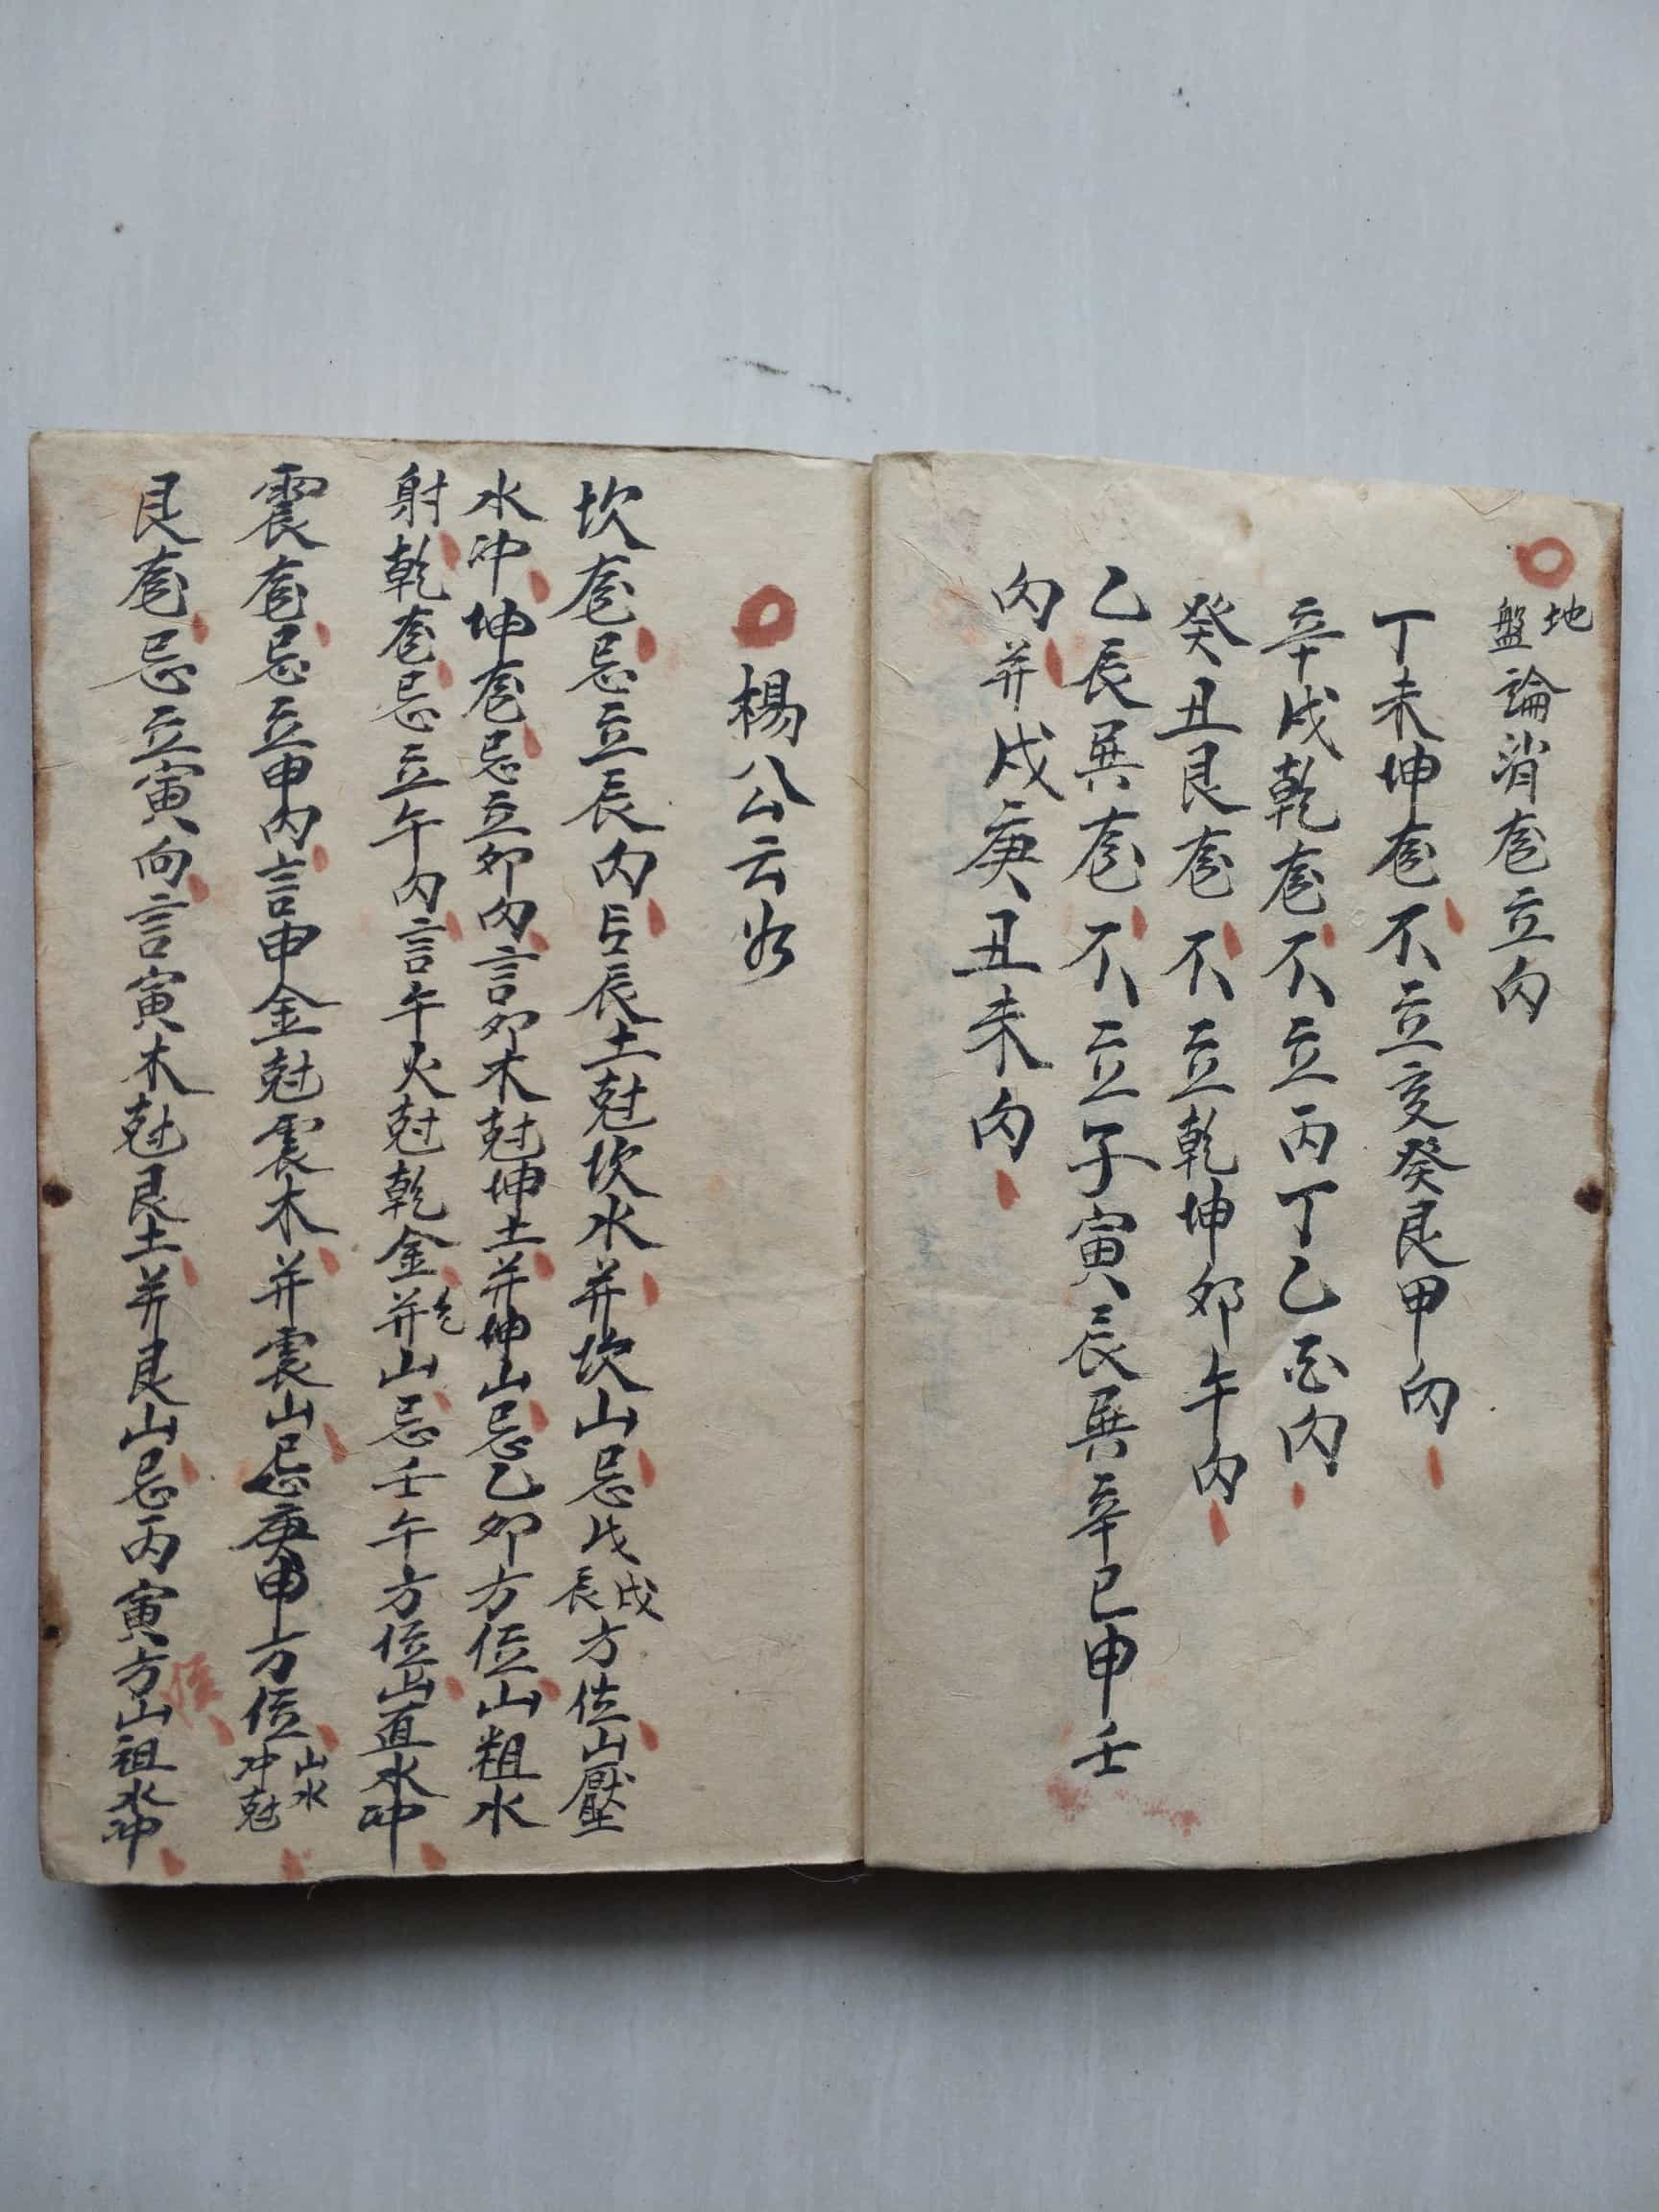 地盤論消龙立向
丁未坤龙不立亥癸艮甲向
辛戌乾龙不立丙丁乙酉向
癸丑艮龙不立乾坤卯午向
乙辰巽龙不立子寅辰巽辛巳申壬
向并戌庚丑未向
楊公云
坎龙忌立辰向言辰土尅坎水并坎山忌戊戌辰方位山壓
水冲坤龙忌立卯向言卯木尅坤土并坤山忌乙卯方位山粗水
射乾龙忌立午向言午火尅乾金并乾山忌壬午方位山直水冲
震龙忌立申向言申金尅震木并震山忌庚申方位山水冲尅
艮龙忌立寅向言寅木尅艮土并艮山忌丙寅方位山祖水冲